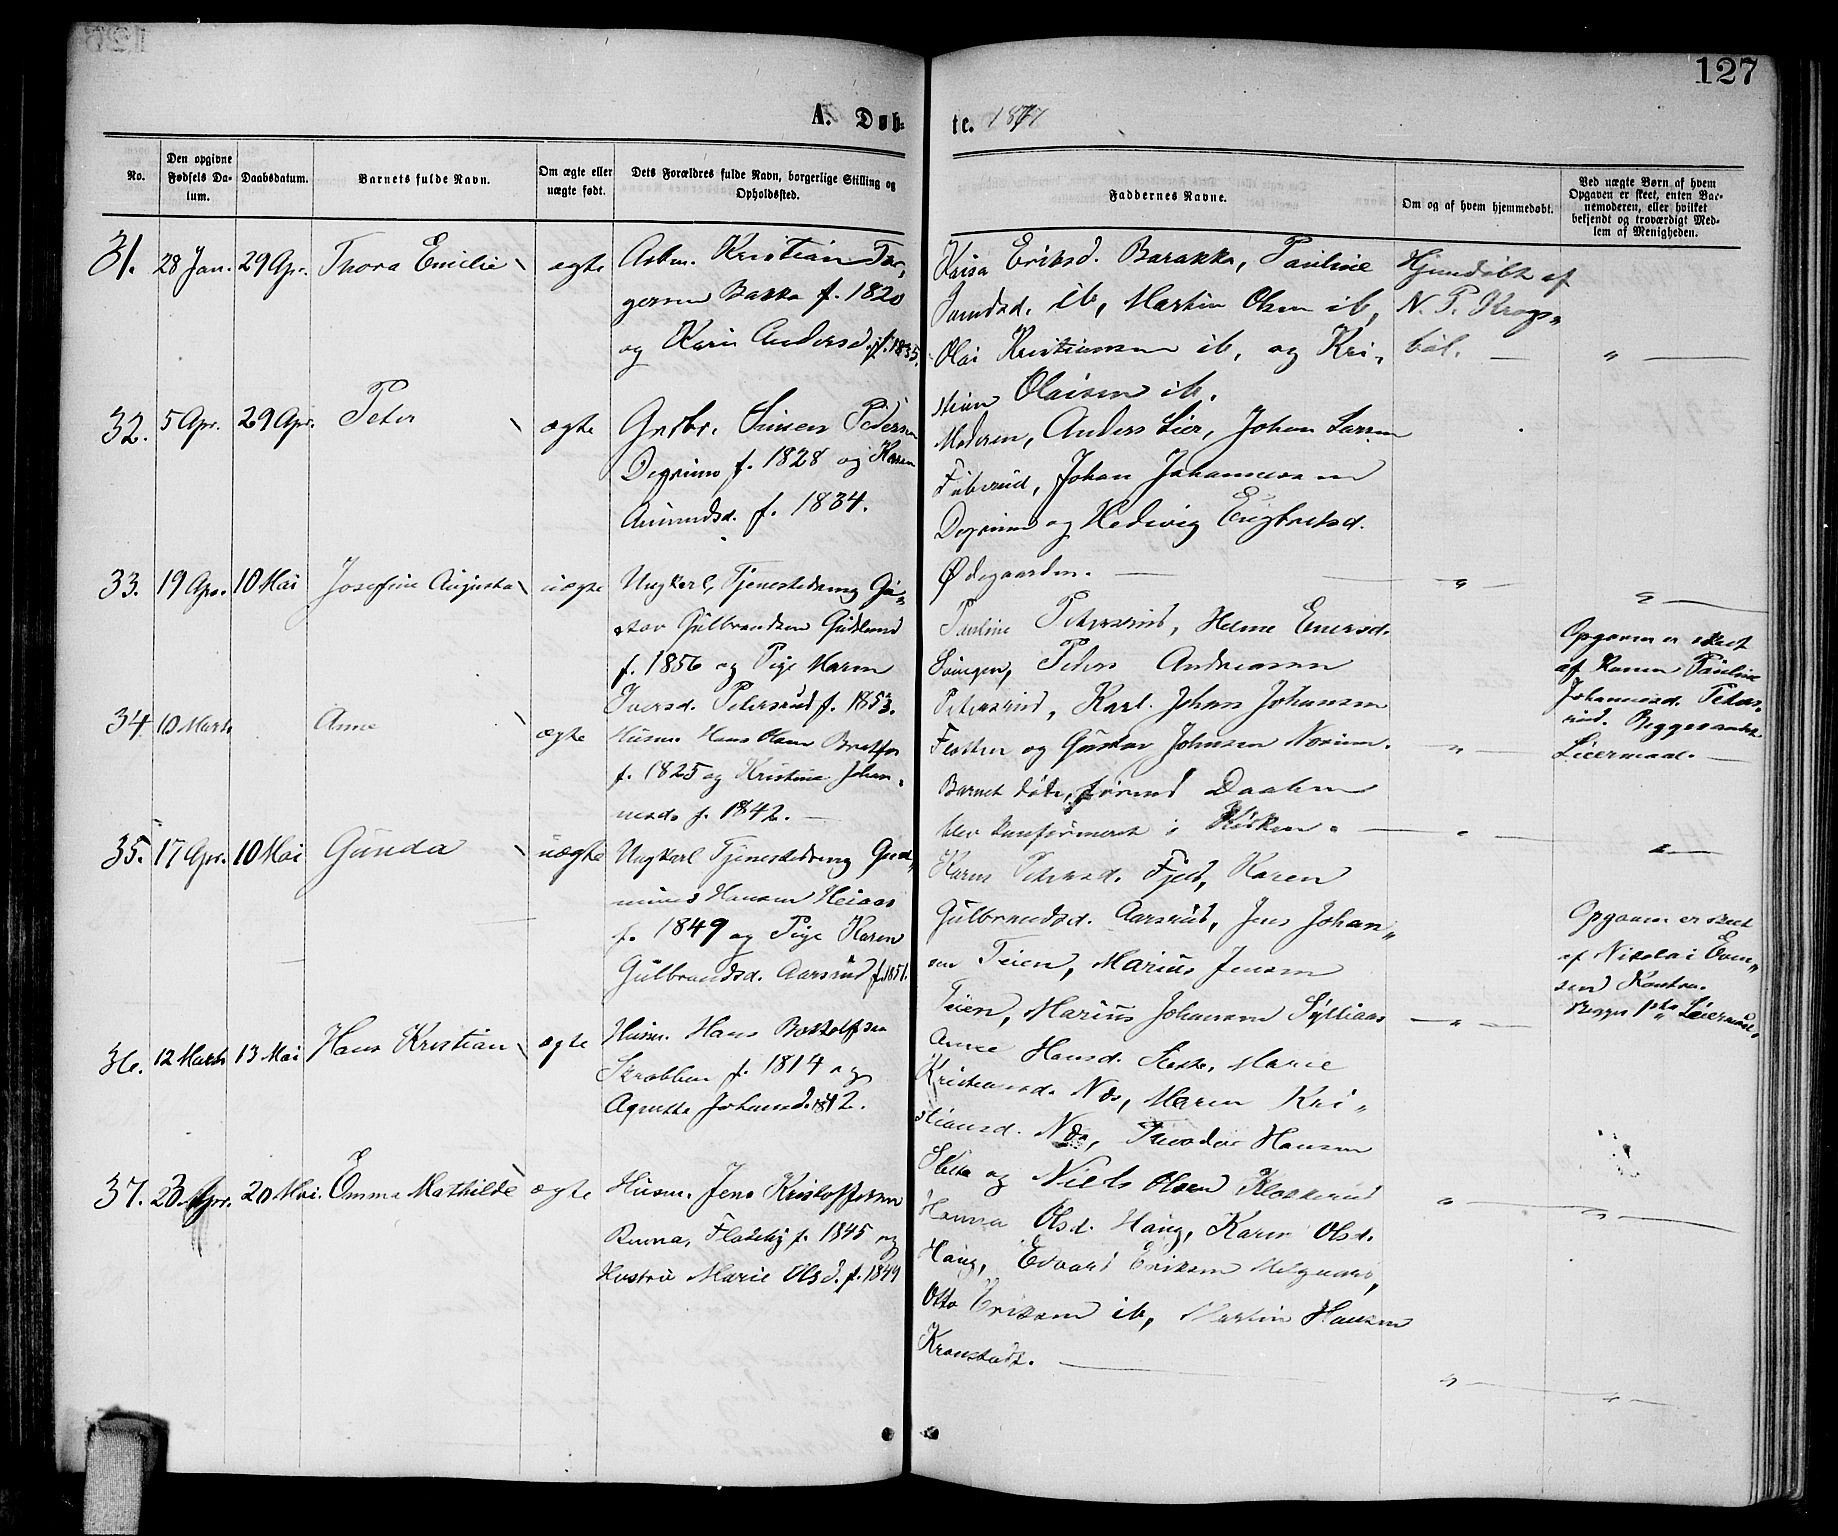 127
A. Døb-
te. 1877
No.
Den opgivne
Fødsels Da-
tum.
Daabsdatum.
Barnets fulde Navn.
Om ægte eller
uægte født.
Dets Forældres fulde Navn, borgerlige Stilling og
Opholdssted.
Faddernes Navne.
Om og af hvem hjemmedøbt.
Ved uægte Børn af hvem
Opgaven er skeet, enten Bar-
nemoderen, eller hvilket
bekjendt og troværdigt Med-
lem af Menigheden.
31. 28 Jan. 29 Apr. Thora Emilie ægte
Arbm. Kristian Tor-
gersen Bakka f. 1820
og Kari Andersd. f. 1835.
Kaisa Eriksd. Barakka, Pauline
ib, Martin Olsen ib,
Olai Kristiansen ib, og Kri-
stian Olaisen ib.
Hjemdøbt af
N. P. Krogs-
bøl. — " —
32. 5 Apr. 29 Apr. Peter ægte
Grdbr. Simen Pedersen
Degrum f. 1828 og Karen
Amundsd. f. 1834.
Moderen, Anders Lier, Johan Larsen
Johan Johannesen
Degrum og Hedvig Engbretsd.
Ødegaarden. — " — " —
33. 19 Apr. 10 Mai Josefine Augusta uægte
Ungkarl, Tjenestedreng Gu-
stav Gulbrandsen Gudlund
f. 1856 og Pige Maren
Iversd. Petersrud f. 1853.
Pauline Petersrud, Helene Enersd.
Peder Andreasen
Petersrud, Karl Johan Johansen
og Gustav Johnsen Norum. — " —
Opgaven er skeet
af Konen Pauline
Johannesd. Peters-
rud. Begges andet
Leiermaal. —
34 10 Marts Anne ægte
Husm. Hans Olsen Bratfos
f. 1825 og Kristine Johan-
nesd. f. 1842. —
Barnet døde, førend Daaben
blev konfirmeret i Kirken. — " — " —
35. 17 Apr. 10 Mai Gunda uægte
Ungkarl Tjenestedreng Gud-
Hansen Heiaas
f. 1849 og Pige Karen
Gulbrandsd. Aarsrud f. 1851.
Karen Petersd. Fjeld, Karen
Gulbrandsd. Aarsrud, Jens Johan-
sen Teien, Marius Jensen
Teien, Marius Johansen Syltiaas — " —
Opgaven er skeet
af Nikolai Even-
sen
Begges 1ste Leiermaal.
36. 12 Marts 13 Mai Hans Kristian ægte
Husm. Hans Bottolfsen
Skrabben f. 1814 og
Agnethe Johansd.
Anne Hansd. Marie
Kristiansd. Næs, Maren Kri-
stiansd. Næs, Theodor Hansen
og Niels Olsen Klokkerud " — " —
37. 23 Apr. 20 Mai. Emma Mathilde ægte
Husm. Jens Kristoffersen
Fladeby f. 1845 og
Hustru Marie Olsd. f. 1849
Hanna Olsd. Haug, Karen Olsd.
Haug, Edvard Eriksen
Otto Eriksen ib, Martin Hansen
Kronstadt. — " — " —